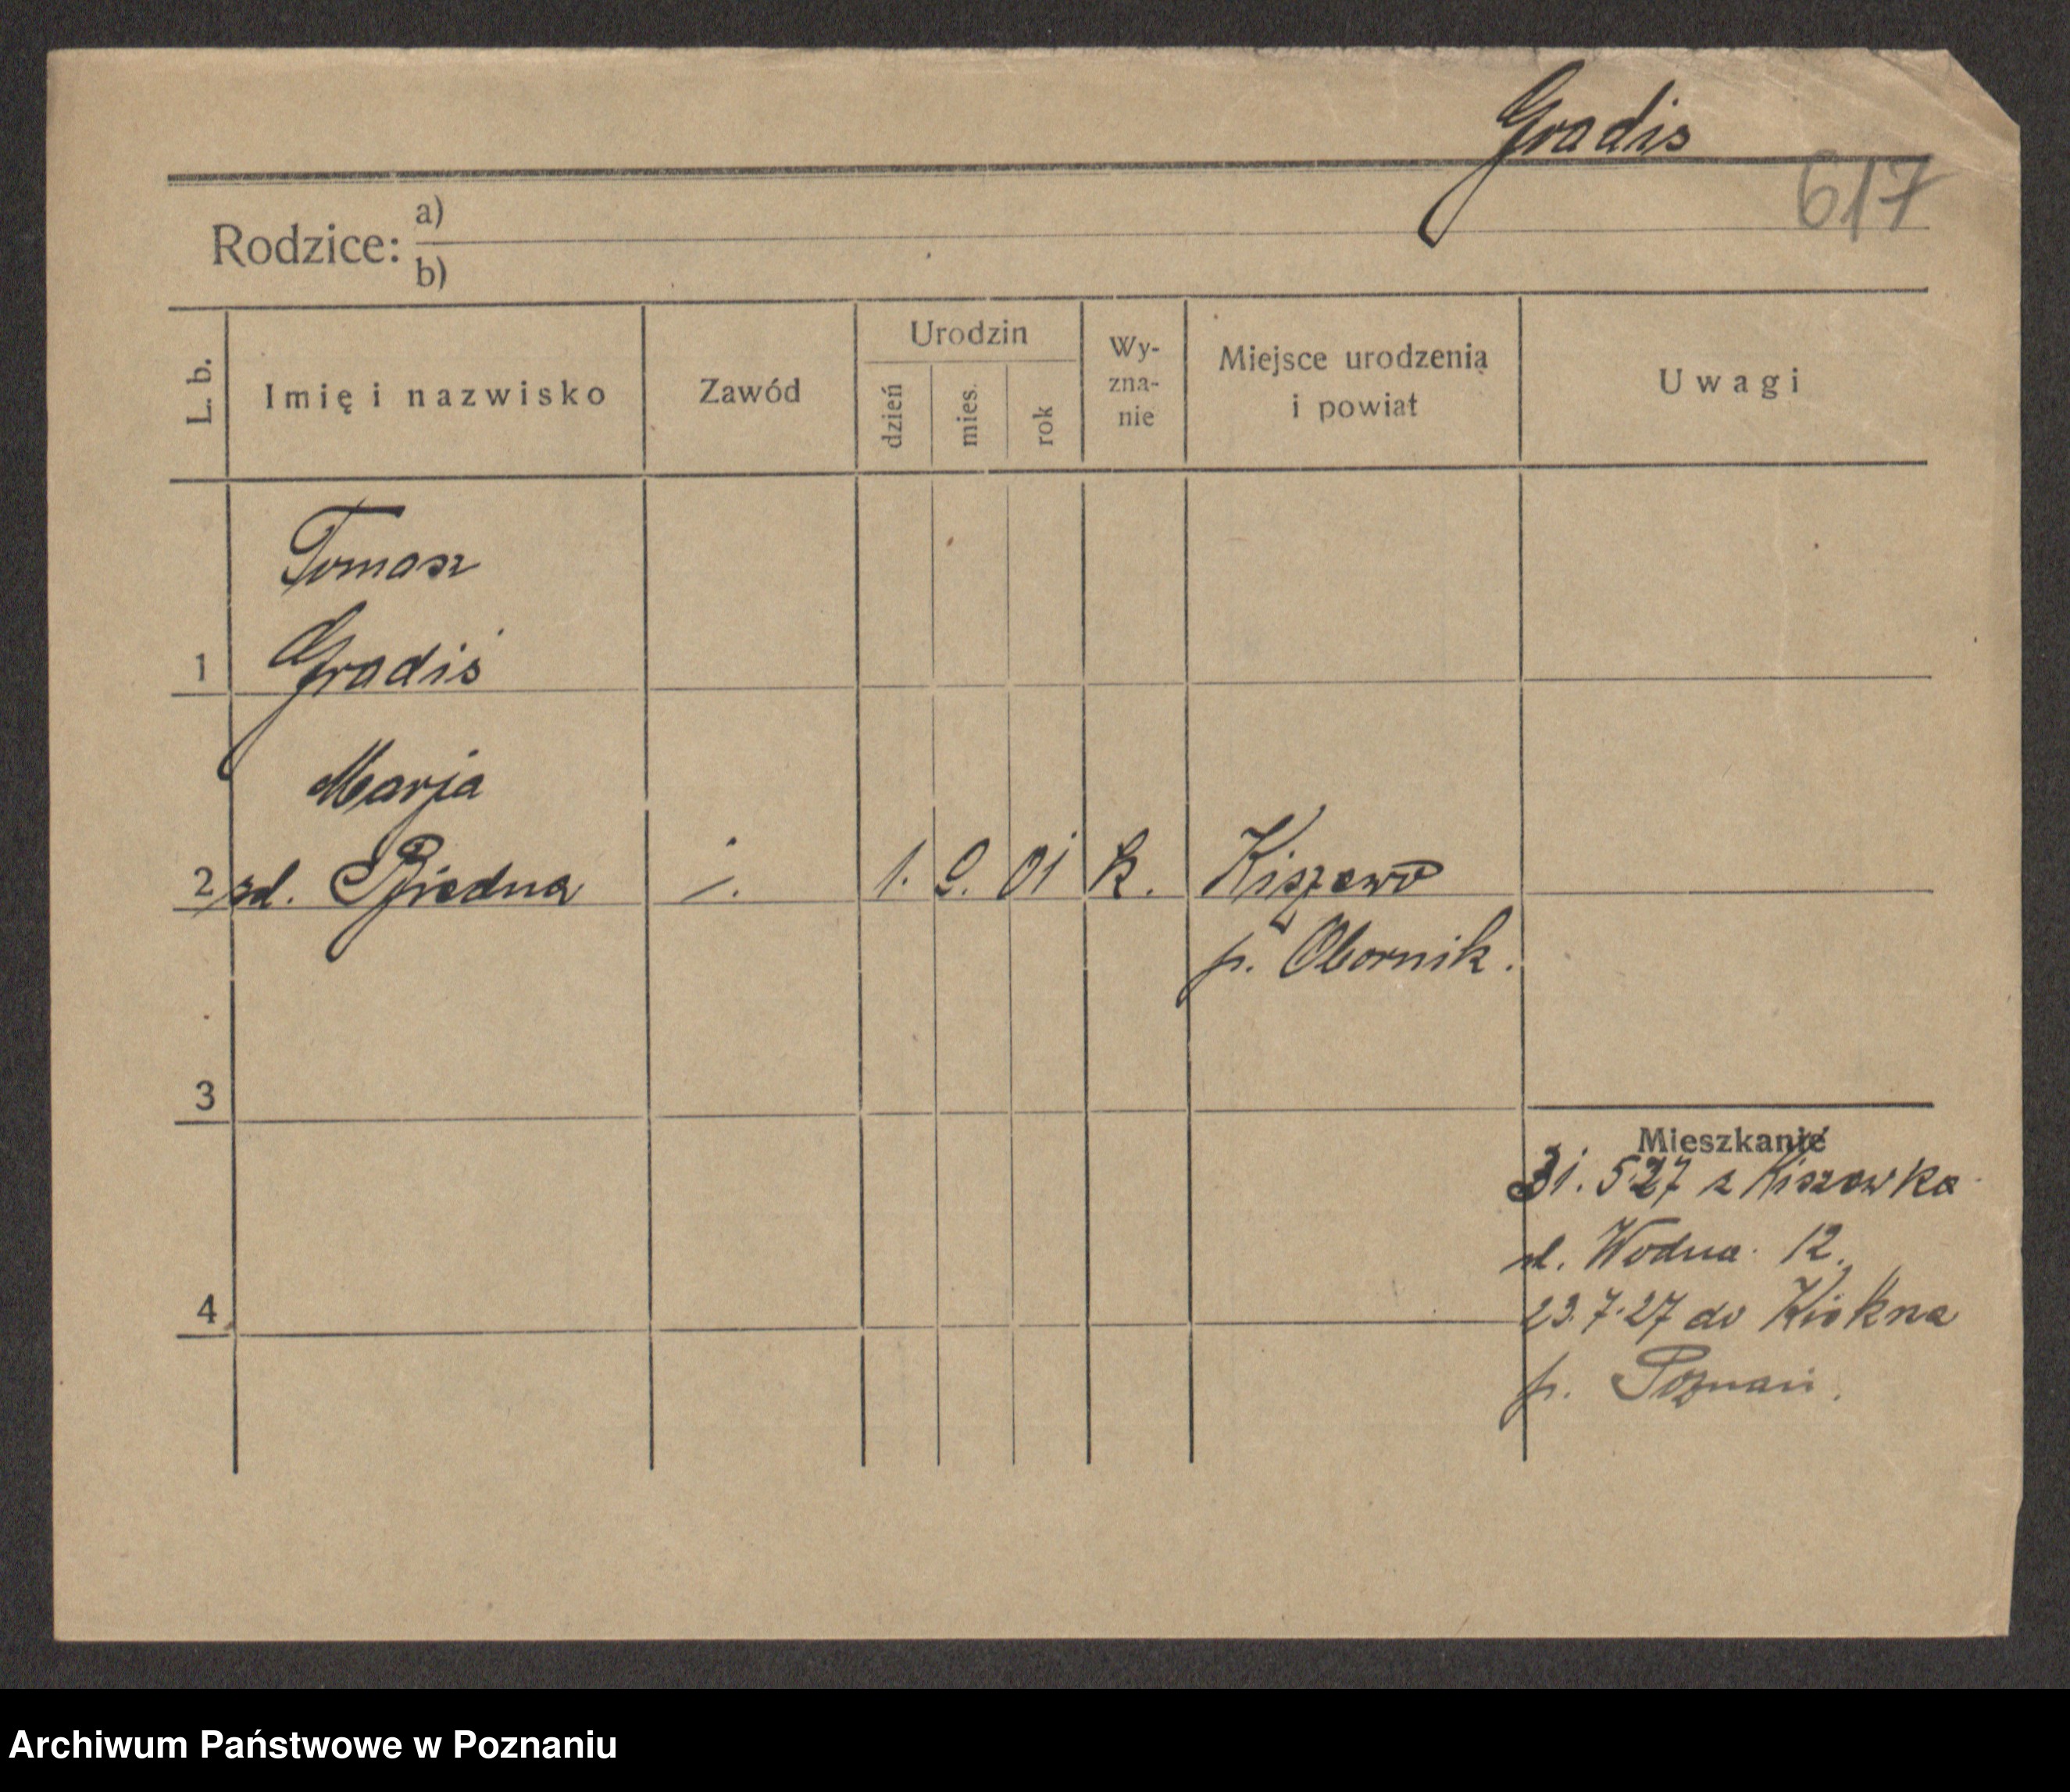 Gradis
617
Rodzice: a)
b)
L. b.
Imię i nazwisko
Zawód
Urodzin
dzień
mies.
rok
Wy-
zna-
nie
Miejsce urodzenia
i powiat
Uwagi
Tomasz
1 Gradis
Marja
2 zd. Biedna ż. 1. 2. 01 k. Kiszewo
p. Obornik.
3
Mieszkanie
31. 5 27 z Kiszewka
ul. Wodna 12.
4
23. 7. 27 do Kiekrza
p. Poznań.
Archiwum Państwowe w Poznaniu